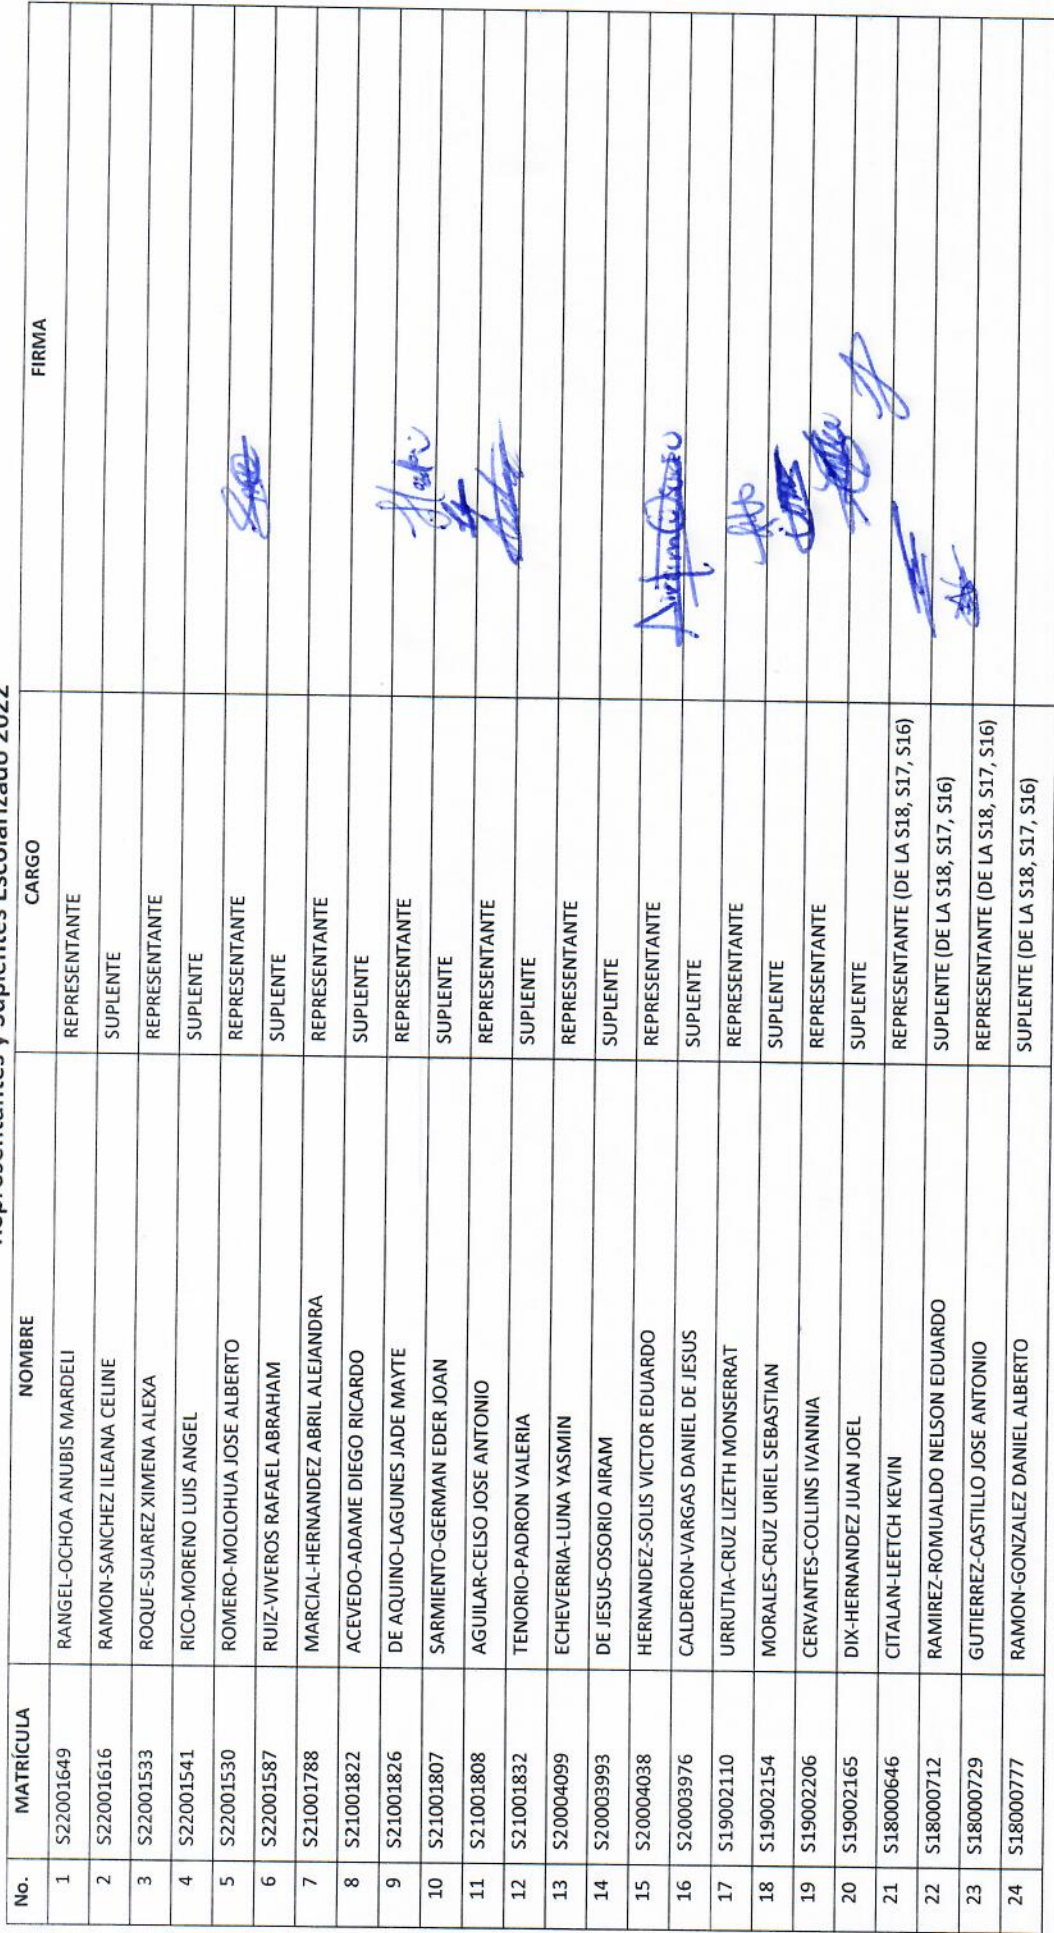 Representantes y Suplentes Escolarizado 2022
No. MATRÍCULA NOMBRE CARGO FIRMA
1 S22001649 RANGEL-OCHOA ANUBIS MARDELI REPRESENTANTE
2 S22001616 RAMON-SANCHEZ ILEANA CELINE SUPLENTE
3 S22001533 ROQUE-SUAREZ XIMENA ALEXA REPRESENTANTE
4 S22001541 RICO-MORENO LUIS ANGEL SUPLENTE
5 S22001530 ROMERO-MOLOHUA JOSE ALBERTO REPRESENTANTE
6 S22001587 RUIZ-VIVEROS RAFAEL ABRAHAM SUPLENTE
7 S21001788 MARCIAL-HERNANDEZ ABRIL ALEJANDRA REPRESENTANTE
8 S21001822 ACEVEDO-ADAME DIEGO RICARDO SUPLENTE
9 S21001826 DE AQUINO-LAGUNES JADE MAYTE REPRESENTANTE
10 S21001807 SARMIENTO-GERMAN EDER JOAN SUPLENTE
11 S21001808 AGUILAR-CELSO JOSE ANTONIO REPRESENTANTE
12 S21001832 TENORIO-PADRON VALERIA SUPLENTE
13 S20004099 ECHEVERRIA-LUNA YASMIN REPRESENTANTE
14 S20003993 DE JESUS-OSORIO AIRAM SUPLENTE
15 S20004038 HERNANDEZ-SOLIS VICTOR EDUARDO REPRESENTANTE
16 S20003976 CALDERON-VARGAS DANIEL DE JESUS SUPLENTE
17 S19002110 URRUTIA-CRUZ LIZETH MONSERRAT REPRESENTANTE
18 S19002154 MORALES-CRUZ URIEL SEBASTIAN SUPLENTE
19 S19002206 CERVANTES-COLLINS IVANNIA REPRESENTANTE
20 S19002165 DIX-HERNANDEZ JUAN JOEL SUPLENTE
21 S18000646 CITALAN-LEETCH KEVIN REPRESENTANTE (DE LA S18, S17, S16)
22 S18000712 RAMIREZ-ROMUALDO NELSON EDUARDO SUPLENTE (DE LA S18, S17, S16)
23 S18000729 GUTIERREZ-CASTILLO JOSE ANTONIO REPRESENTANTE (DE LA S18, S17, S16)
24 S18000777 RAMON-GONZALEZ DANIEL ALBERTO SUPLENTE (DE LA S18, S17, S16)